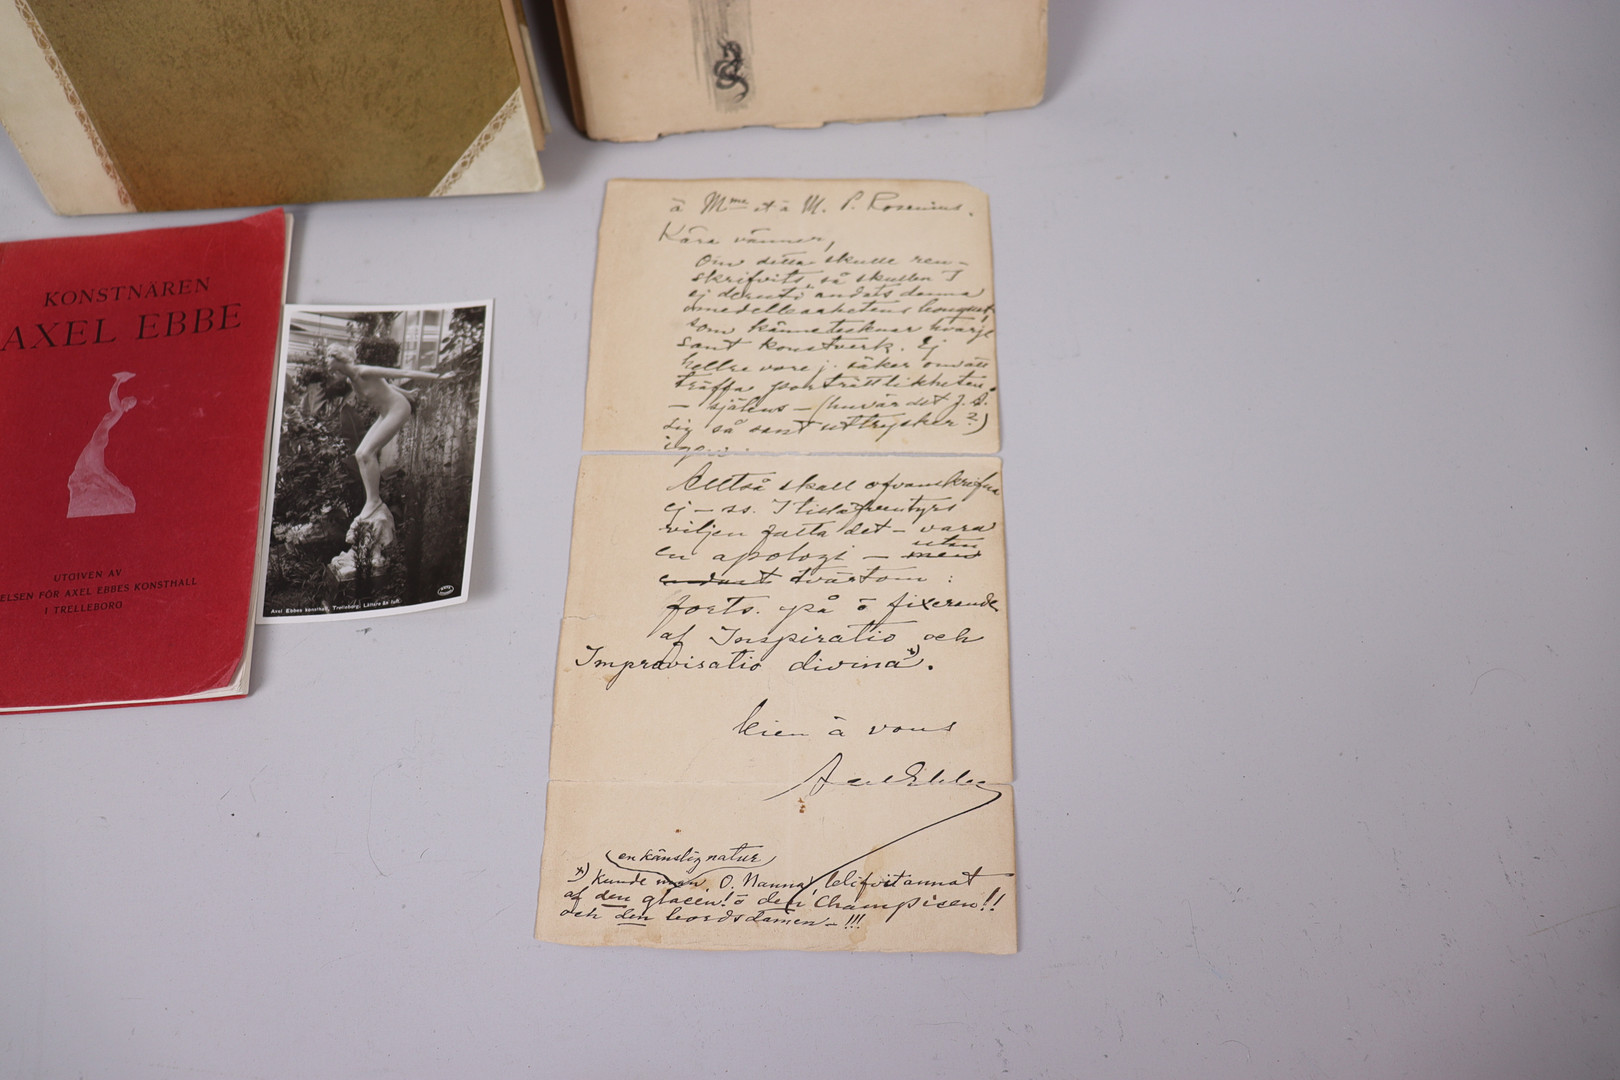 KONSTNÄREN
AXEL EBBE
UTGIVEN AV
ELSEN FÖR AXEL EBBES KONSTHALL
I TRELLEBORG
Axel Ebbes konsthall, Trelleborg: Lättare än luft.
à Mme et à M. P. Rosenius.
Kära vänner,
Om detta skulle ren-
skrifvits, så skullen I
ej deruti andats denna
omedelbarhetens bouquet,
som kännetecknar hvarje
sant konstverk. Ej
hellre vore j. säker om att
träffa porträttlikheten
– själens – (hur är det J. A.
sig så sant uttrycker?)
igen.
Alltså skall ofvanskrifna
ej – ss. I tilläfventyrs
viljen fatta det – vara
en apologi – men utan
endast tvärtom:
forts. på o fixerande
af Inspiratio och
Improvisatio divina x).
bien à vous
Axel Ebbe
(en känslig natur)
x) Kunde man, O. Nanna, blifvit annat
af den glacen! o den Champisen!!
och den bordsdamen – !!!